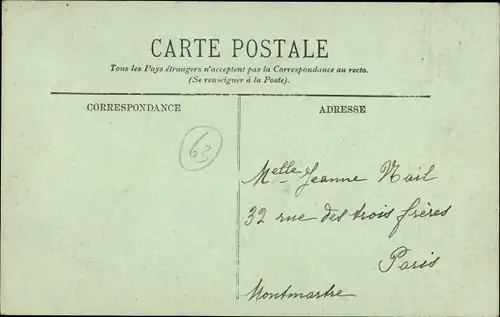 CARTE POSTALE
Tous les Pays étrangers n'acceptent pas la Correspondance au recto.
(Se renseigner à la Poste).
CORRESPONDANCE
ADRESSE
63
Melle Jeanne Nail
32 rue des trois frères
Paris
Montmartre